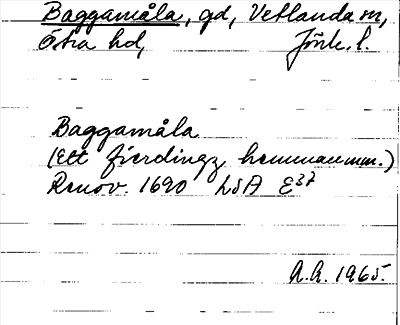 Baggamåla, gd, Vetlanda sn,
Östra hd, Jönk. l.
Baggamåla
(Ett fierdingz hemman mm.)
Renov. 1690 LSA E37
A.A. 1965.